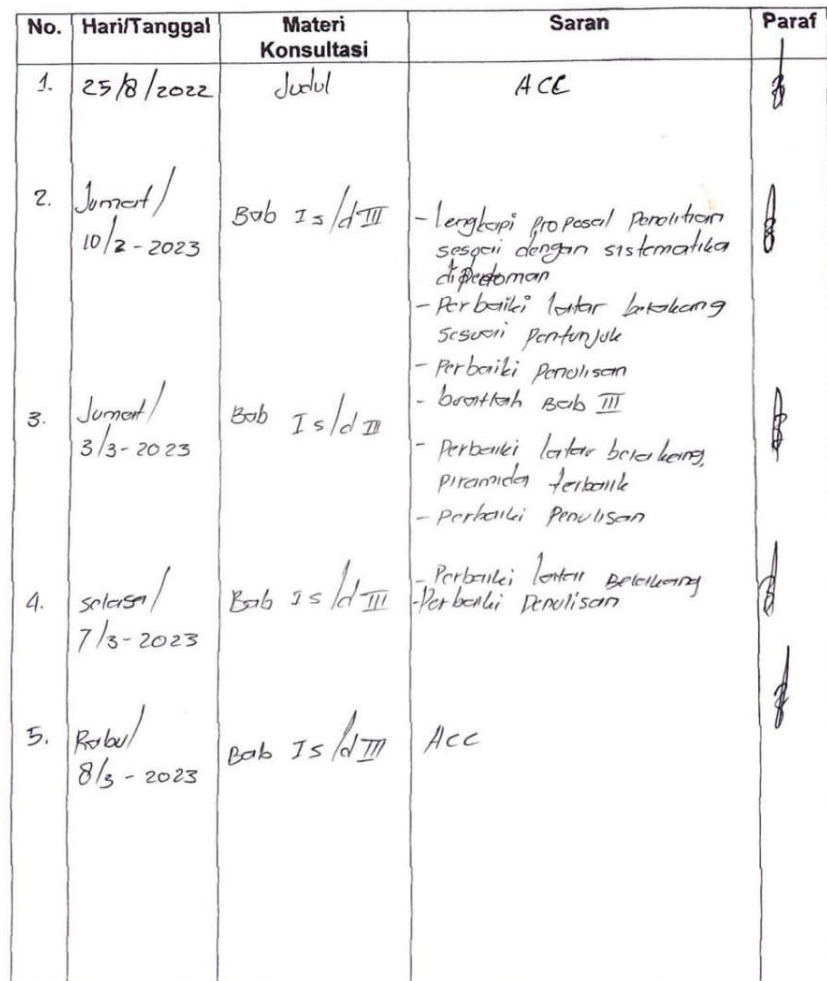 No. Hari/Tanggal Materi Konsultasi Saran Paraf
1. 25/8/2022 Judul ACC
2. Jumat/ 10/2-2023 Bab I s/d III
- lengkapi proposal penelitian
sesuai dengan sistematika
dipedoman
- Perbaiki latar belakang
sesuai
- Perbaiki Penulisan
3. Jumat/ 3/3-2023 Bab I s/d III
- Bab III
- Perbaiki latar belakang,
piramida terbalik
- Perbaiki Penulisan
4. Selasa/ 7/3-2023 Bab I s/d III
- Perbaiki latar Belakang
- Perbaiki Penulisan
5. Rabu/ 8/3-2023 Bab I s/d III Acc